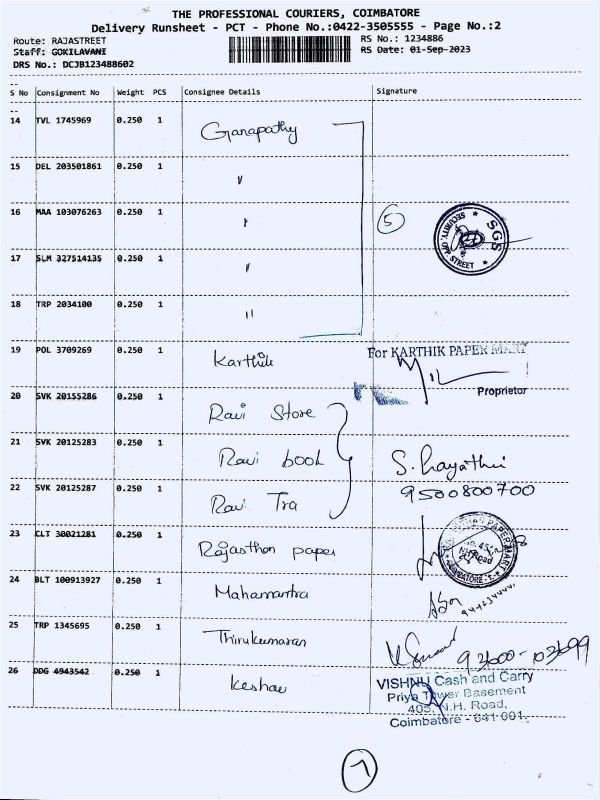 THE PROFESSIONAL COURIERS, COIMBATORE
Delivery Runsheet - PCT - Phone No.:0422-3505555 - Page No.:2
Route: RAJASTREET
RS No.: 1234886
Staff: GOKILAVANI
RS Date: 01-Sep-2023
DRS No.: DCJB123488602
S No Consignment No Weight PCS Consignee Details Signature
14 TVL 1745969 0.250 1 Ganapathy
15 DEL 203501861 0.250 1 "
16 MAA 103076263 0.250 1 " 5
SGS
SECURITY, STREET
17 SLM 327514135 0.250 1 "
18 TRP 2034100 0.250 1 "
19 POL 3709269 0.250 1 Karthik For KARTHIK PAPER MART
Proprietor
20 SVK 20155286 0.250 1 Ravi Store
21 SVK 20125283 0.250 1 Ravi book
22 SVK 20125287 0.250 1 Ravi Tra 9500800700
23 CLT 30021281 0.250 1 Rajasthan paper
PAPER MART
COIMBATORE
24 BLT 100913927 0.250 1 Mahamantra
25 TRP 1345695 0.250 1 Thirukumaran
26 DDG 4943542 0.250 1 Keshav
VISHNU Cash and Carry
Priya Tower Basement
405, N.H. Road,
Coimbatore - 641 001.
7